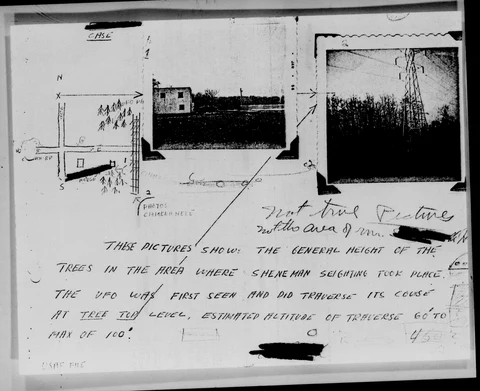 CASE
N
S
PHOTOS
Not true Pictures
THESE PICTURES SHOW: THE GENERAL HEIGHT OF THE
TREES IN THE AREA WHERE SHENEMAN SEIGHTING TOOK PLACE.
THE UFO WAS FIRST SEEN AND DID TRAVERSE ITS COUSE
AT TREE TOP LEVEL, ESTIMATED ALTITUDE OF TRAVERSE 60' TO
MAX OF 100'.